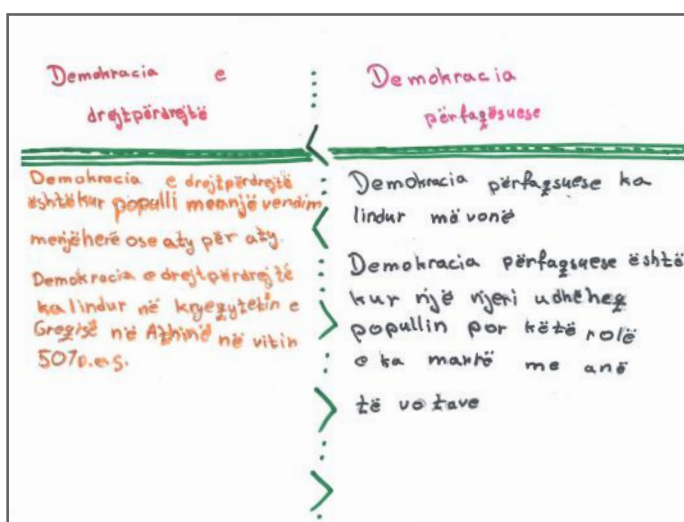 Demokracia e
drejtpërdrejtë
Demokracia e drejtpërdrejtë
është kur populli merr një vendim
menjëherë ose aty për aty.
Demokracia e drejtpërdrejtë
ka lindur në kryeqytetin e
Greqisë në Athinë në vitin
507p.e.s.
Demokracia
përfaqësuese
Demokracia përfaqsuese ka
lindur më vonë
Demokracia përfaqsuese është
kur një njeri udhëheq
popullin por këtë rolë
e ka marrë me anë
të votave